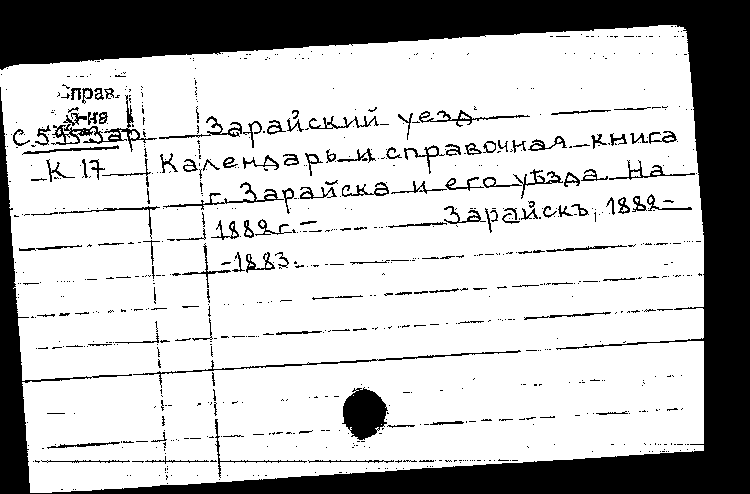 Справ.
б-на
С 595 Зар.
К 17
Зарайский уезд
Календарь и справочная книга
г. Зарайска и его уѣзда. На
1882 г. – Зарайскъ, 1882–
–1883.